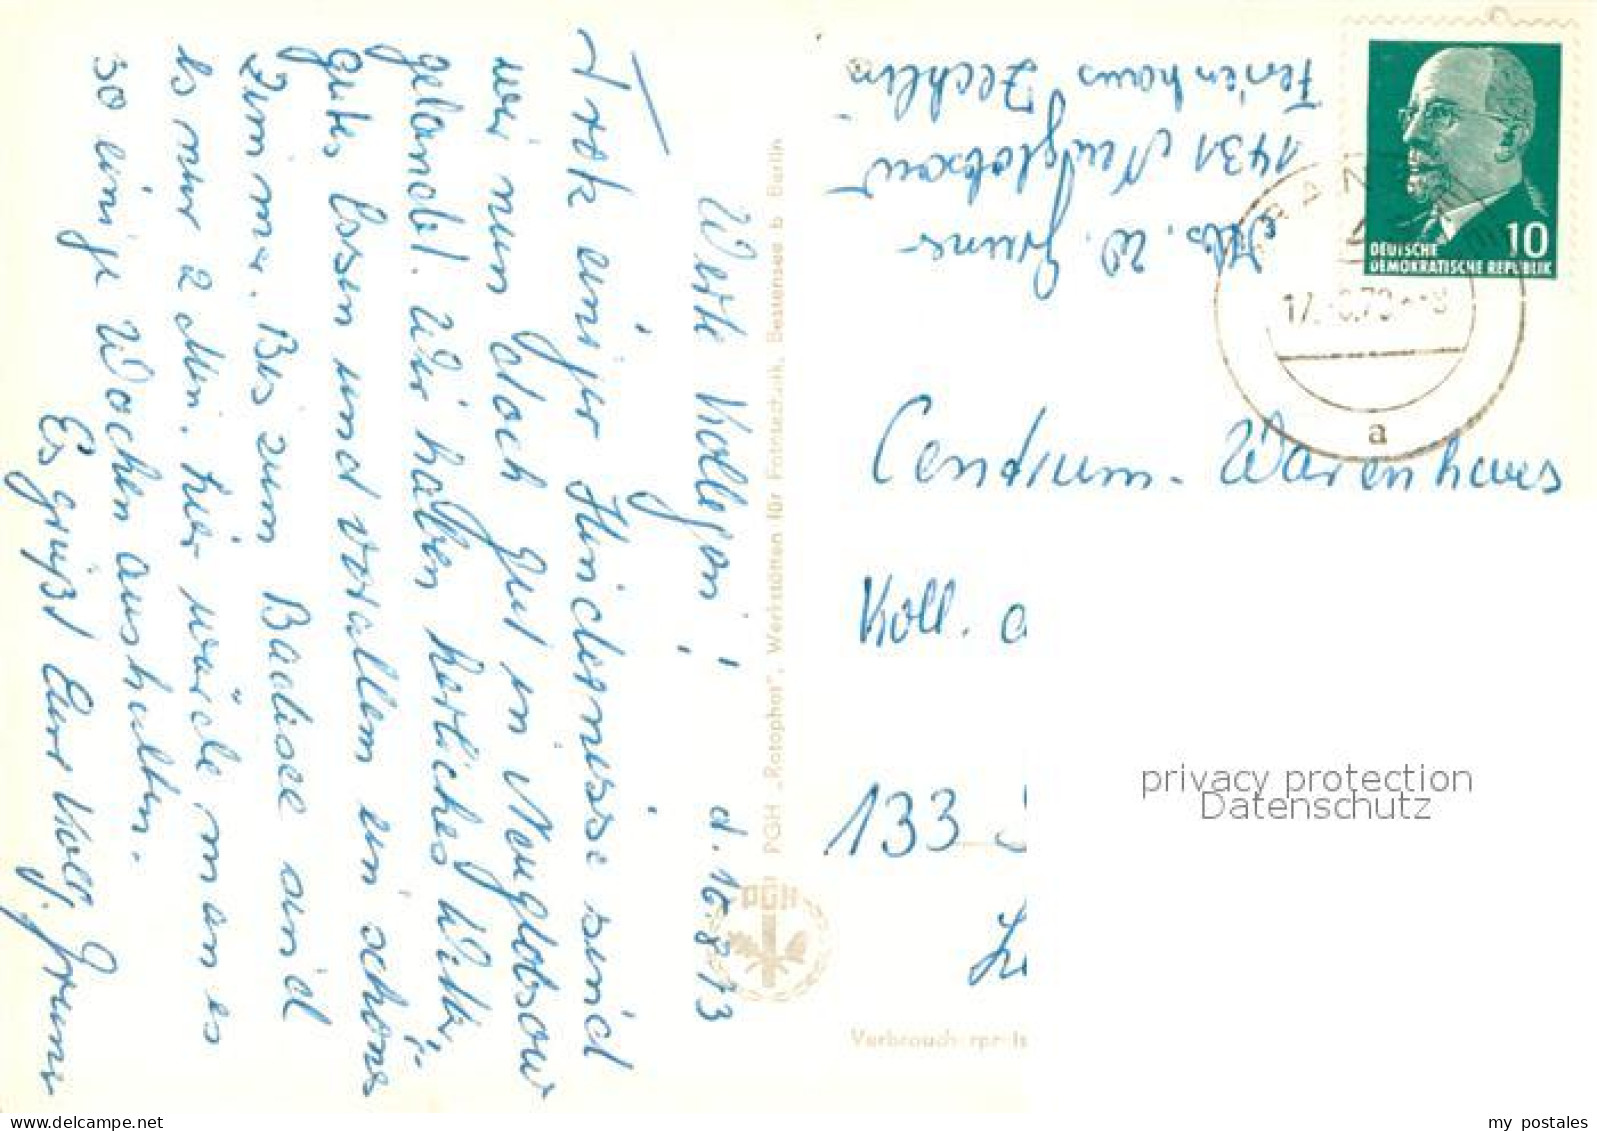 Werte Kollegen! d. 16.8.73
Trotz einiger Hindernisse sind
wir nun doch gut in Neuglobsow
gelandet. Wir haben herliches Wetter,
gutes Essen und vorallem ein schönes
Zimmer. Bis zum Badesee sind
es nur 2 Min. Hier würde man es
so einige Wochen aushalten.
Es grüßt Eure Koll.
PGH „Rotophot", Werkstätten für Fototechnik, Bestensee b. Berlin
PGH
Abs. W.
1431 Neuglobsow
Ferienhaus Zechlin
DEUTSCHE
DEMOKRATISCHE REPUBLIK
10
a
Centrum-Warenhaus
Koll.
133
privacy protection
Datenschutz
my postales